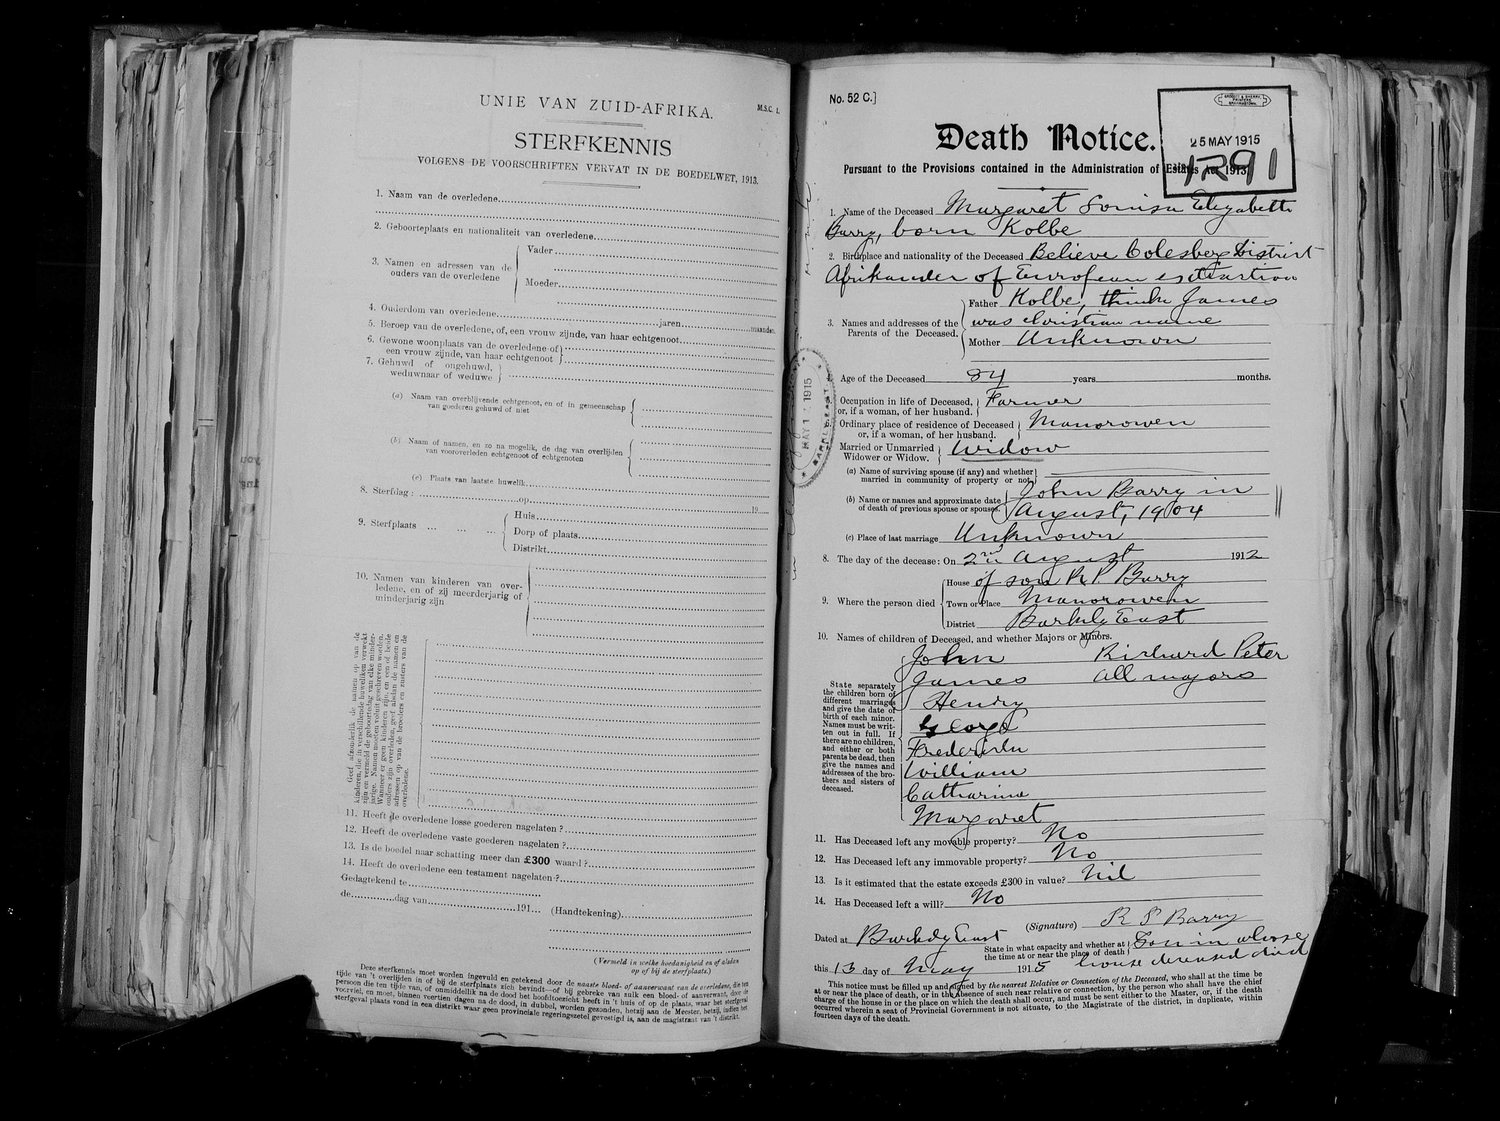 UNIE VAN ZUID-AFRIKA.
M.S.C. 1.
STERFKENNIS
VOLGENS DE VOORSCHRIFTEN VERVAT IN DE BOEDELWET, 1913.
1. Naam van de overledene
2. Geboorteplaats en nationaliteit van overledene
3. Namen en adressen van de ouders van de overledene
Vader
Moeder
4. Ouderdom van overledene jaren maanden
5. Beroep van de overledene, of, een vrouw zijnde, van haar echtgenoot
6. Gewone woonplaats van de overledene of een vrouw zijnde, van haar echtgenoot
7. Gehuwd of ongehuwd, weduwnaar of weduwe
(a) Naam van overblijvende echtgenoot, en of in gemeenschap
van goederen gehuwd of niet
(b) Naam of namen, en zo na mogelik, de dag van overlijden
van vooroverleden echtgenoot of echtgenoten
(c) Plaats van laatste huwelik
8. Sterfdag: op 19
9. Sterfplaats
Huis
Dorp of plaats
Distrikt
10. Namen van kinderen van over-
ledene, en of zij meerderjarig of
minderjarig zijn
Geef afzonderlik de namen op van de
kinderen, die in verschillende huweliken verwekt
zijn en vermeld de geboortedag van elke minder-
jarige. Namen moeten voluit geschreven worden.
Wanneer er geen kinderen zijn, en een of beide
ouders zijn overleden, geef alsdan de namen en
adressen op van de broeders en zusters van de
overledene.
11. Heeft de overledene losse goederen nagelaten?
12. Heeft de overledene vaste goederen nagelaten?
13. Is de boedel naar schatting meer dan £300 waard?
14. Heeft de overledene een testament nagelaten?
Gedagtekend te
de dag van 191 (Handtekening)
(Vermeld in welke hoedanigheid en of alsdan
op of bij de sterfplaats.)
Deze sterfkennis moet worden ingevuld en getekend door de naaste bloed- of aanverwant van de overledene, die ten
tijde van 't overlijden in of bij de sterfplaats zich bevindt—of bij gebreke van zulk een bloed- of aanverwant, door de
persoon die ten tijde van, of onmiddellik na de dood het hoofdtoezicht heeft in 't huis of op de plaats, waar het sterfgeval
voorviel, en moet, binnen veertien dagen na de dood, in dubbel, worden gezonden, hetzij aan de Meester, hetzij, indien het
sterfgeval plaats vond in een distrikt waar geen provinciale regeringszetel gevestigd is, aan de magistraat van 't distrikt.
No. 52 C.]
25 MAY 1915
1291
Death Notice.
Pursuant to the Provisions contained in the Administration of Estates Act 1913.
1. Name of the Deceased Margaret Louisa Elizabeth
Barry, born Kolbe
2. Birthplace and nationality of the Deceased Believe Colesberg District
Afrikander of European extraction
3. Names and addresses of the Parents of the Deceased.
Father Kolbe, think James
was christian name
Mother Unknown
Age of the Deceased 84 years months.
Occupation in life of Deceased, or, if a woman, of her husband. Farmer
Ordinary place of residence of Deceased or, if a woman, of her husband. Manorowen
Married or Unmarried Widower or Widow. Widow
(a) Name of surviving spouse (if any) and whether
married in community of property or not
(b) Name or names and approximate date
of death of previous spouse or spouses.
John Barry in
August, 1904
(c) Place of last marriage Unknown
8. The day of the decease: On 2nd August 1912
9. Where the person died
House of son R P Barry
Town or Place Manorowen
District Barkly East
10. Names of children of Deceased, and whether Majors or Minors.
John Richard Peter
James all majors
Henry
George
Frederick
William
Catharine
Margaret
State separately
the children born of
different marriages
and give the date of
birth of each minor.
Names must be writ-
ten out in full. If
there are no children,
and either or both
parents be dead, then
give the names and
addresses of the bro-
thers and sisters of
deceased.
11. Has Deceased left any movable property? No
12. Has Deceased left any immovable property? No
13. Is it estimated that the estate exceeds £300 in value? Nil
14. Has Deceased left a will? No
(Signature) R P Barry
Dated at Barkly East
State in what capacity and whether at
the time at or near the place of death
Son in whose
house deceased died
this 13 day of May 1915
This notice must be filled up and signed by the nearest Relative or Connection of the Deceased, who shall at the time be
at or near the place of death, or in the absence of such near relative or connection, by the person who shall have the chief
charge of the house or the place on which the death shall occur, and must be sent either to the Master, or, if the death
occurred wherein a seat of Provincial Government is not situate, to the Magistrate of the district, in duplicate, within
fourteen days of the death.
MAY 1 1915
BARKLY EAST